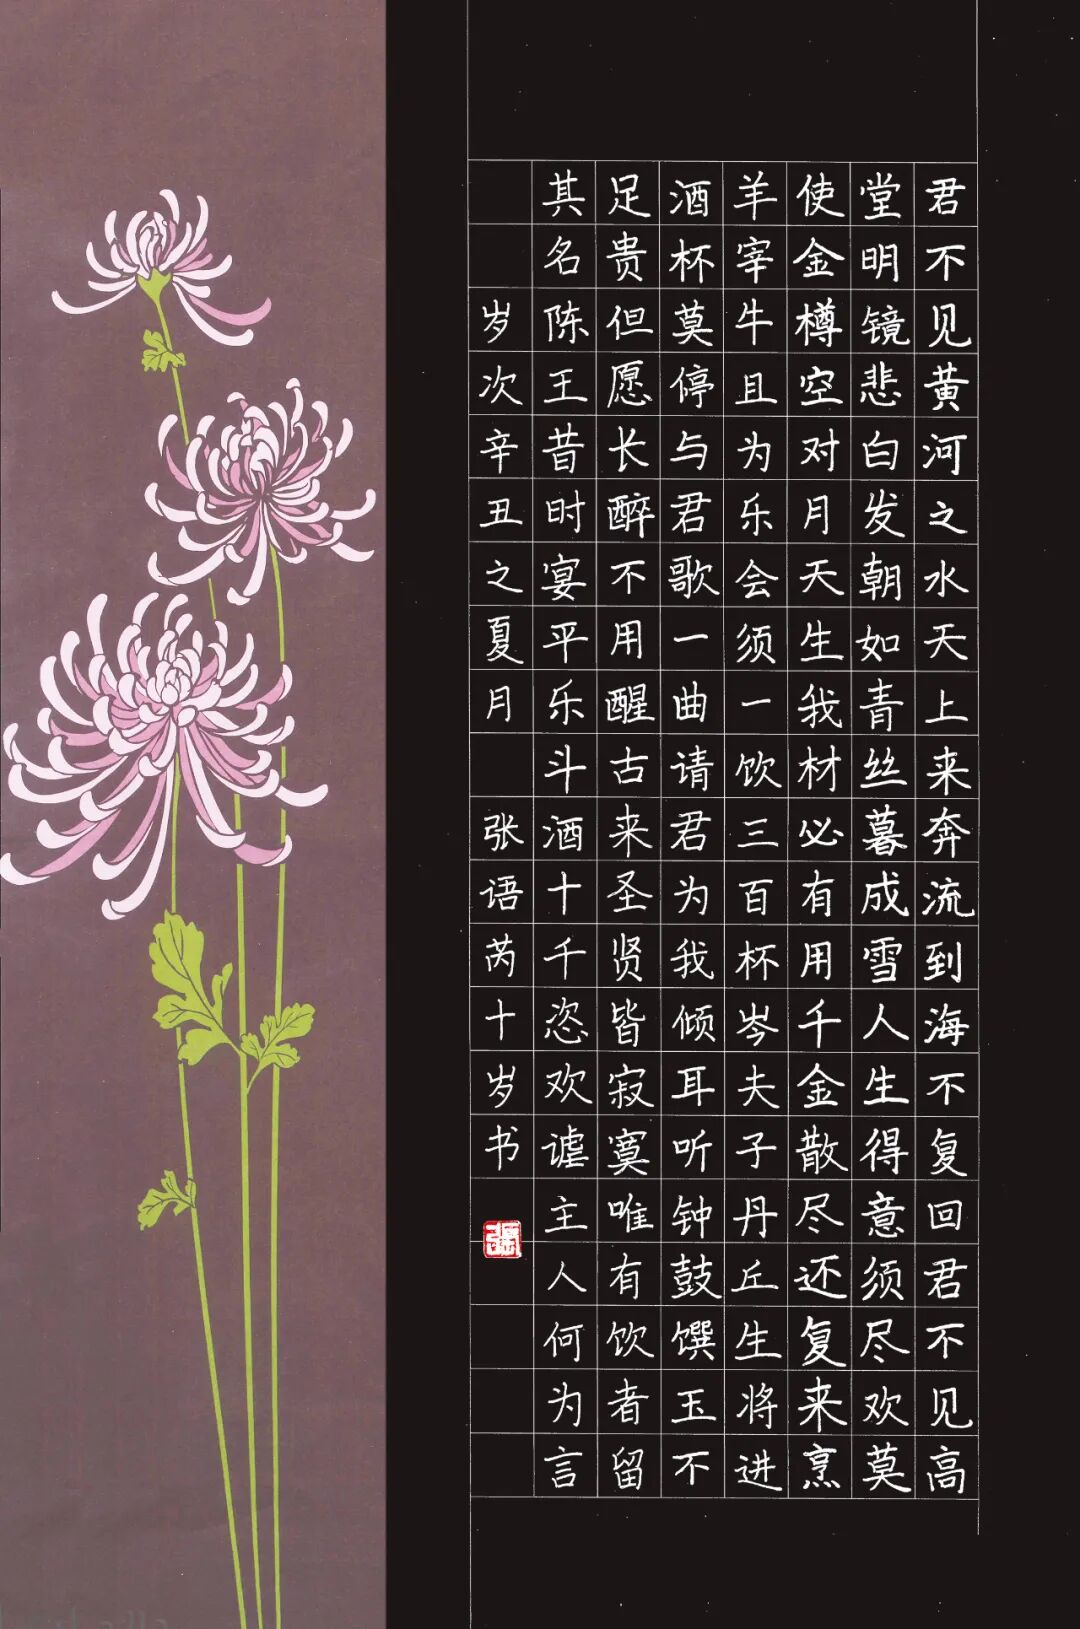 君不见黄河之水天上来奔流到海不复回君不见高
堂明镜悲白发朝如青丝暮成雪人生得意须尽欢莫
使金樽空对月天生我材必有用千金散尽还复来烹
羊宰牛且为乐会须一饮三百杯岑夫子丹丘生将进
酒杯莫停与君歌一曲请君为我倾耳听钟鼓馔玉不
足贵但愿长醉不用醒古来圣贤皆寂寞唯有饮者留
其名陈王昔时宴平乐斗酒十千恣欢谑主人何为言
岁次辛丑之夏月 张语芮十岁书